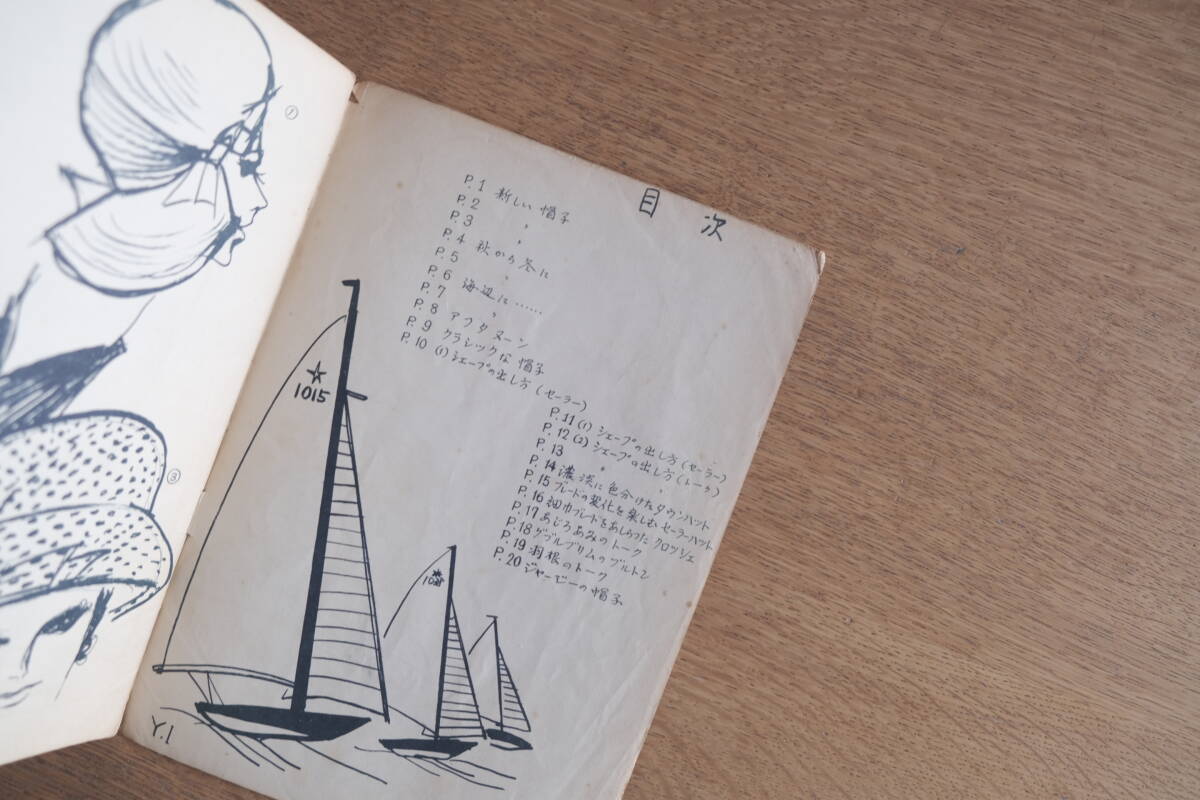 ①
③
目次
P.1 新しい帽子
P.2 〃
P.3 〃
P.4 秋から冬に
P.5 〃
P.6 海辺に……
P.7 〃
P.8 アフタヌーン
P.9 クラシックな帽子
P.10 (1)シェープの出し方(セーラー)
P.11 (1)シェープの出し方(セーラー)
P.12 (2)シェープの出し方(トーク)
P.13 〃 〃
P.14 濃淡に色分けたダウンハット
P.15 ブレードの変化を楽しむセーラーハット
P.16 細巾ブレードをあしらったクロッシェ
P.17 あじろあみのトーク
P.18 ダブルブリムのブルトン
P.19 羽根のトーク
P.20 ジャージーの帽子
1015
Y.I